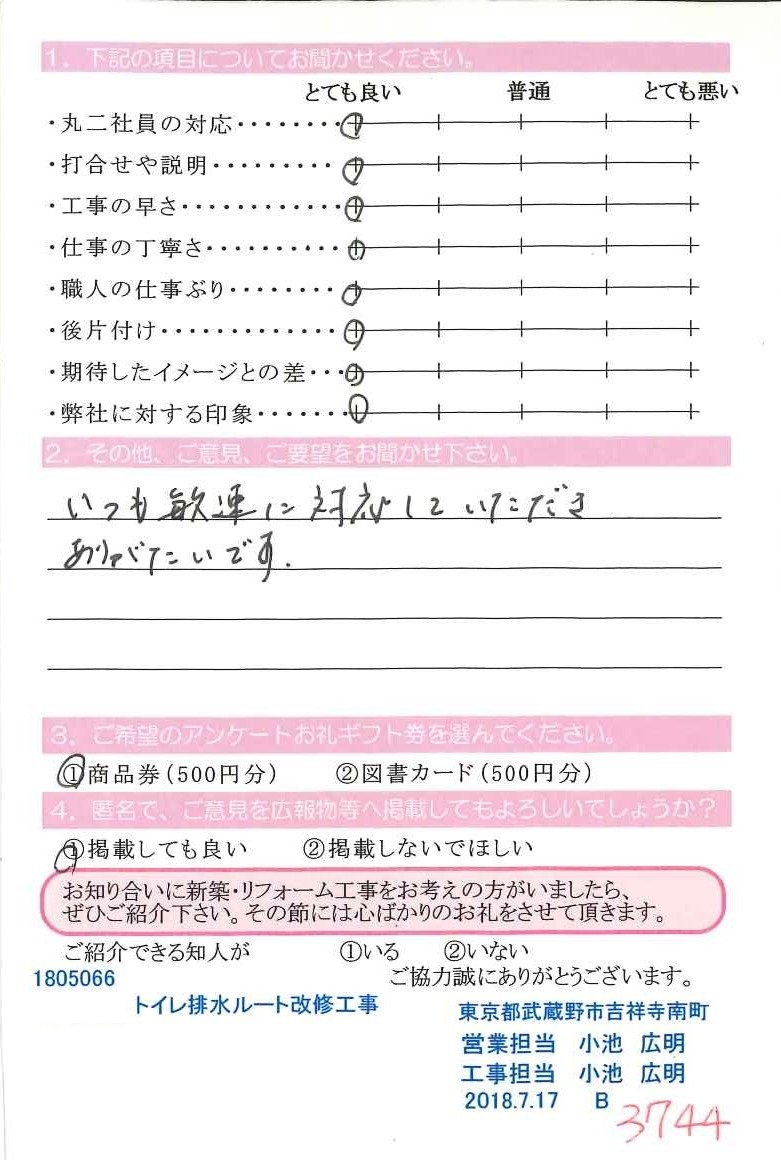 1. 下記の項目についてお聞かせください。
とても良い 普通 とても悪い
・丸二社員の対応・・・・・・・・
・打合せや説明・・・・・・・・・
・工事の早さ・・・・・・・・・・・・
・仕事の丁寧さ・・・・・・・・・・
・職人の仕事ぶり・・・・・・・・
・後片付け・・・・・・・・・・・・・
・期待したイメージとの差・・・
・弊社に対する印象・・・・・・・
2. その他、ご意見、ご要望をお聞かせ下さい。
いつも敏速に対応していただき
ありがたいです.
3. ご希望のアンケートお礼ギフト券を選んでください。
①商品券(500円分) ②図書カード(500円分)
4. 匿名で、ご意見を広報物等へ掲載してもよろしいでしょうか?
①掲載しても良い ②掲載しないでほしい
お知り合いに新築・リフォーム工事をお考えの方がいましたら、
ぜひご紹介下さい。その節には心ばかりのお礼をさせて頂きます。
ご紹介できる知人が ①いる ②いない
1805066 ご協力誠にありがとうございます。
トイレ排水ルート改修工事 東京都武蔵野市吉祥寺南町
営業担当 小池 広明
工事担当 小池 広明
2018.7.17 B
3744